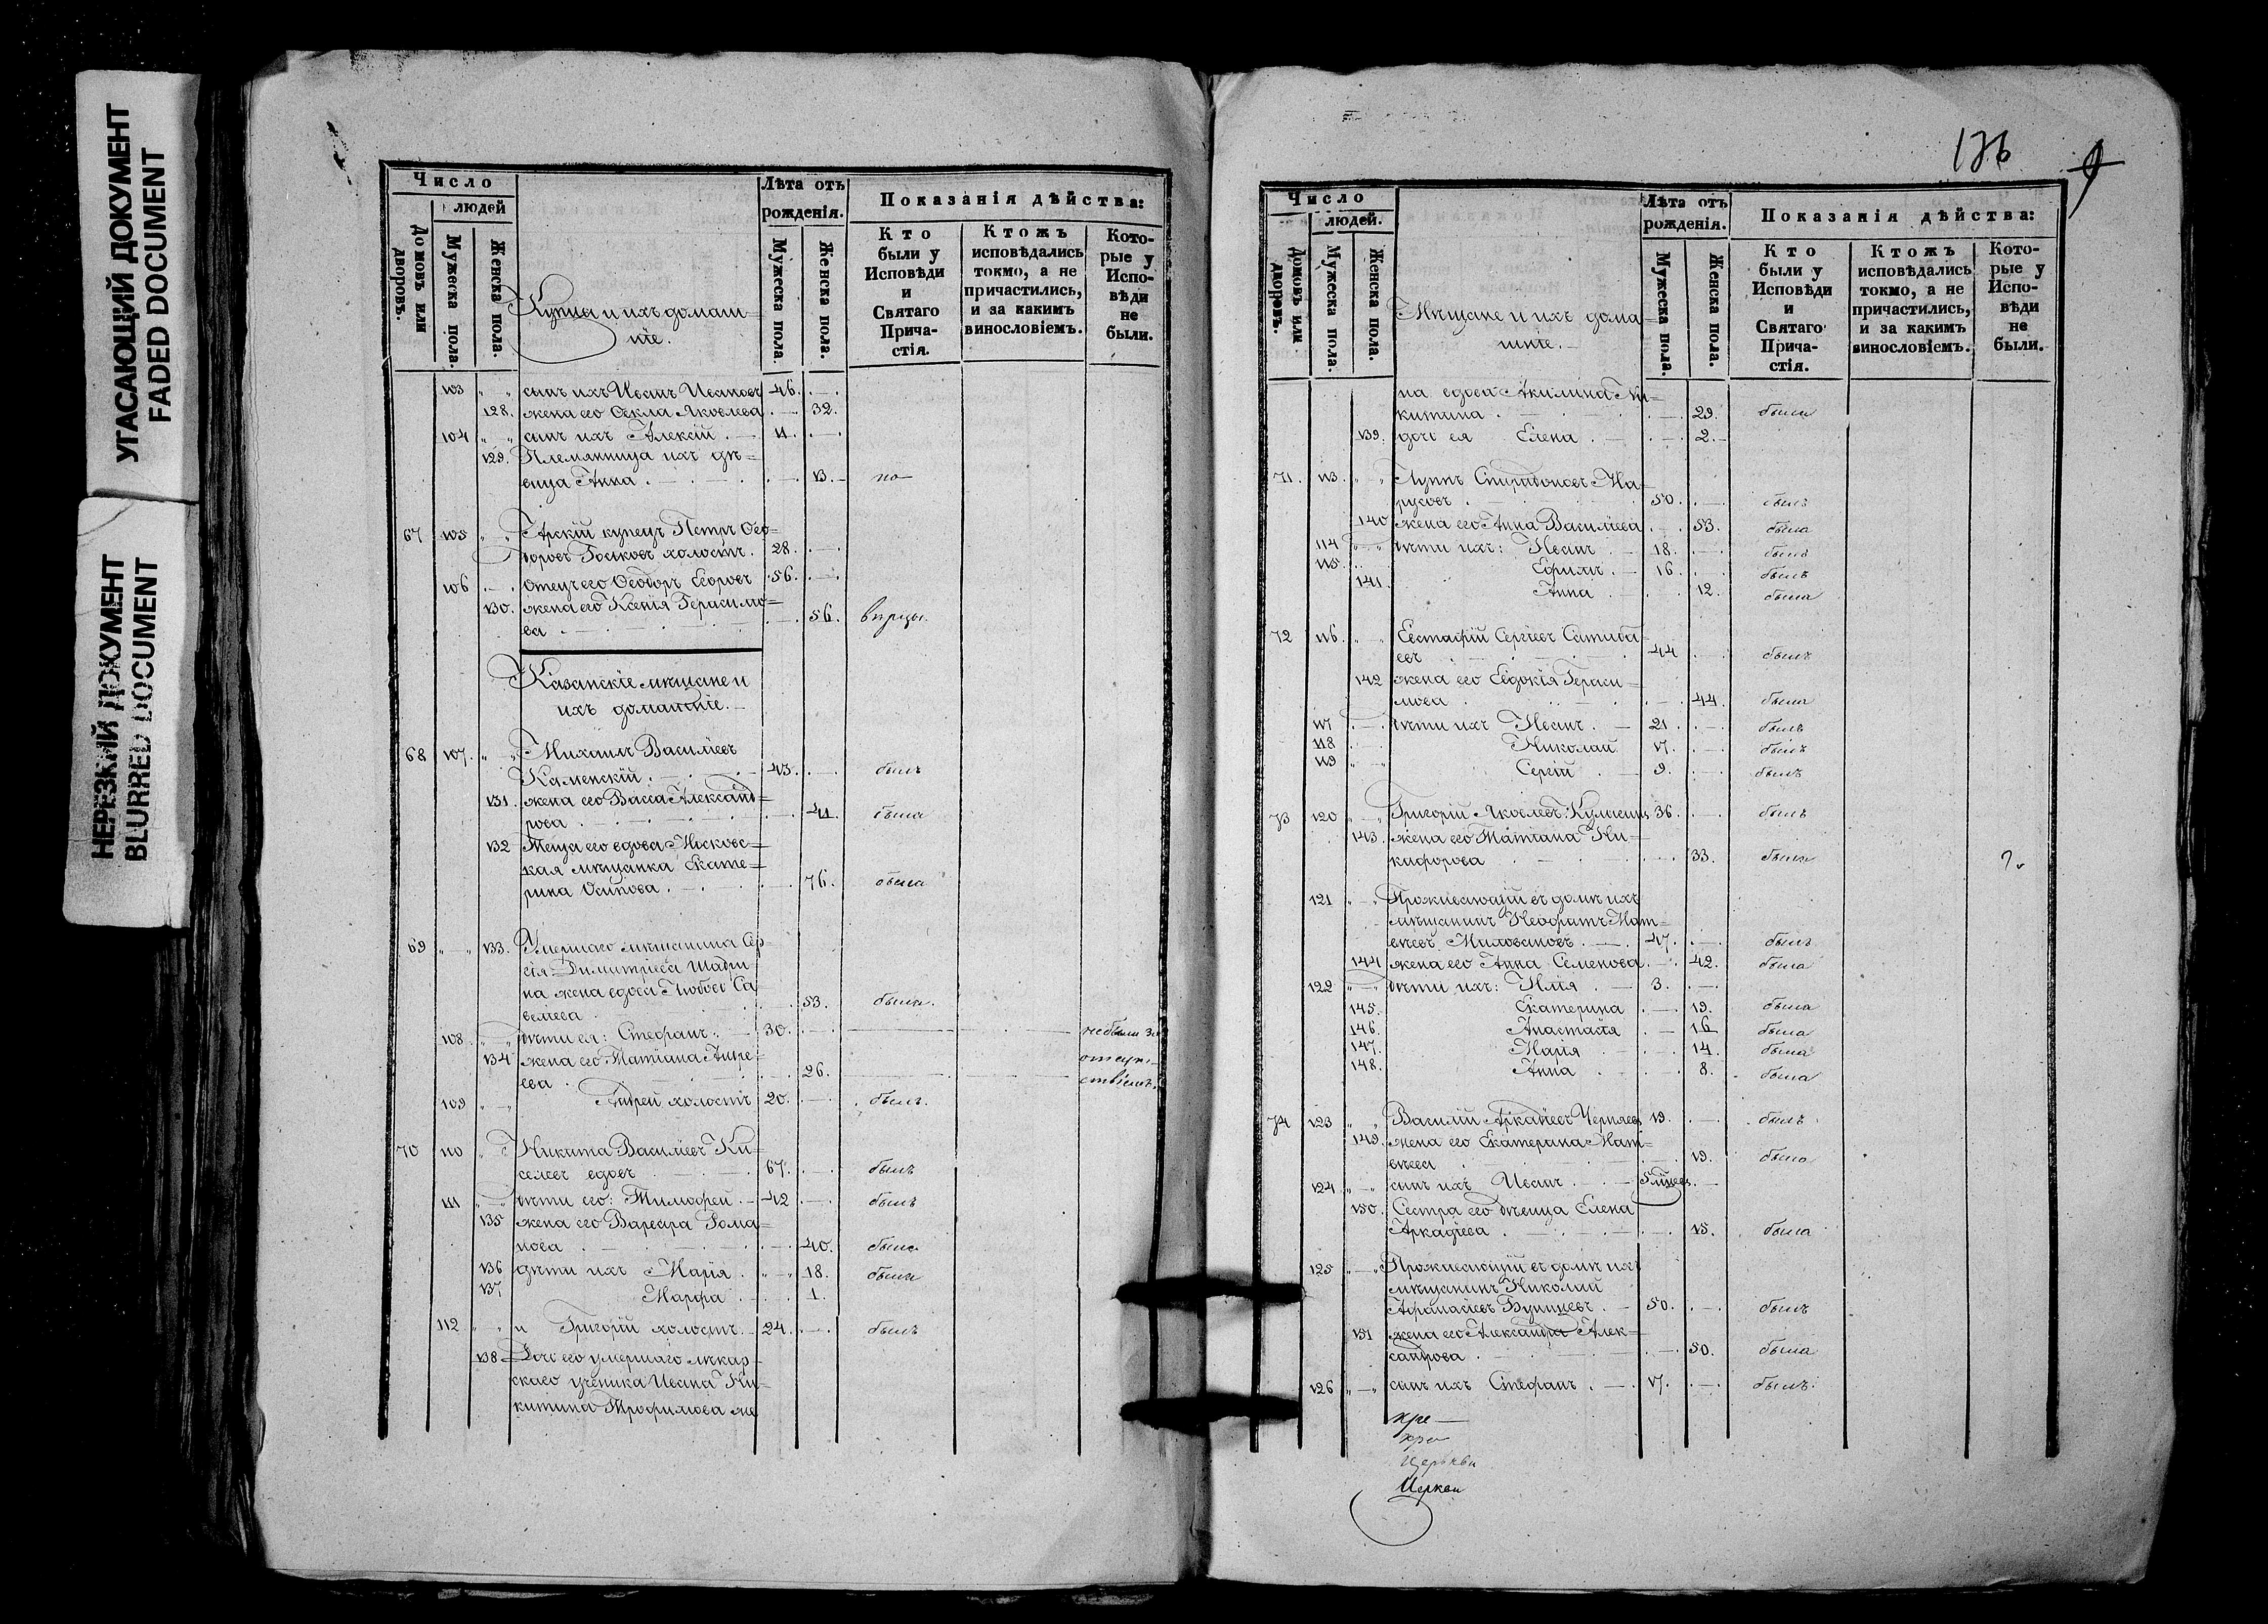 УГАСАЮЩИЙ ДОКУМЕНТ
FADED DOCUMENT
НЕРЕЗКИЙ ДОКУМЕНТ
BLURRED DOCUMENT
Число
людей
Домовъ или дворовъ.
Мужеска пола.
Женска пола.
Купцы и ихъ домаш=
ніе.
Лѣта отъ
рожденія.
Мужеска пола.
Женска пола.
Показанія дѣйства:
Кто были у Исповѣди и Святаго Прича-стія.
Ктожъ исповѣдались токмо, а не причастились, и за какимъ винословіемъ.
Кото-рые у Испо-вѣди не были.
103 " " сынъ ихъ Иванъ Ивановъ 46. . — .
128. жена его Ѳекла Яковлева . — . 32.
104 " " сынъ ихъ Алексій . — 11. . — .
129. Племянница ихъ дѣ=
вица Анна . — . 13. —
67 105 " " Арскій купецъ Петръ Ѳео=
доровъ холостъ. 28. . — .
106 . — . отецъ его Ѳеодоръ Егоровъ 56. . — .
130. жена его Ксенія Герасимо=
ва . — . 56.
Казанскіе мѣщане и
ихъ домашніе. —
68 107. " " Михаилъ Васильевъ
Каменскій . — 43. . — . былъ
131. жена его Васса Александ=
рова . — . 41. была
132 Теща его вдова
кая мѣщанка Екате=
рина Осипова . — . 76. была
69 " " 133. Умершаго мѣщанина Сер=
гія Димитріева Шадри=
на жена вдова Любовь Са
велева . — . 53. была.
108. " " дѣти ея: Стефанъ. — 30. . — . небыли за
134 жена его Татіана Андре= отсут=
ева . — . 26. ствіемъ.
109 " " Андрей холостъ 20. . — . былъ.
70 110 " " Никита Васильевъ Ки=
селевъ вдовъ 67. . — . былъ
111 " " дѣти его: Тимофей. — 42 . — . былъ
135 жена его Варвара Рома=
нова . — . 40. была
136 дѣти ихъ Марія . " " 18. была
137. Марфа . — . 1.
112 " " и Григорій холостъ. — 24. . — . былъ
138 Дочь его умершаго лѣкар=
скаго ученика Ивана Ни=
китина Трофимова же
136
9
Число
людей.
Домовъ или дворовъ.
Мужеска пола.
Женска пола.
Мѣщане и ихъ дома=
шніе. —
Лѣта отъ
рожденія.
Мужеска пола.
Женска пола.
Показанія дѣйства:
Кто были у Исповѣди и Святаго Прича-стія.
Ктожъ исповѣдались токмо, а не причастились, и за какимъ винословіемъ.
Кото-рые у Испо-вѣди не были.
на вдова Акилина Ни=
китина . — . 29. была
139. дочь ея Елена . — . 2. —
71. 113. " " Лупъ Спиридоновъ Ма=
русовъ . — 50. . — . былъ
140 жена его Анна Васильева . — . 53. была
114 " " дѣти ихъ: Иванъ. — 18. . — . былъ
115. Ефимъ. — 16. . — . былъ
141. Анна . — . 12. была
72 116. " " Евстафій Сергіевъ
евъ . — 44 . — . былъ
142 жена его Евдокія Гераси=
мова . — . 44. была
117 " " дѣти ихъ Иванъ. — 21. . — . былъ
118 Николай 17. . — . былъ
119 " " Сергій . — 9. . — . былъ
73 120 " " Григорій Яковлевъ 36. . — . былъ
143. жена его Татіана Ни=
кифорова . — . 33. была
121 " " Проживающій въ домѣ ихъ
мѣщанинъ Неофитъ Мат=
вѣевъ Миловановъ . — . 47. . — . былъ
144 жена его Анна Семенова . — . 42. была
122 " " дѣти ихъ: Илія . — 3. . — .
145. Екатерина . — 19. была
146. Анастасія . — 16 была
147. Марія . — . 14. была
148. Анна . — . 8. была
74 123 " " Василій Аркадіевъ Черняевъ 19. . — . былъ
149. жена его Екатерина Мат=
вѣева . — . 19. была
124 " " сынъ ихъ Иванъ . — . . —
150. Сестра его дѣвица Елена
Аркадіева . — . 15. была
125 " " Проживающій въ домѣ ихъ
мѣщанинъ Николай
Афанасіевъ . — 50. . — . былъ
151 жена его Александра Алек=
сандрова . — . 50. была
126 " " сынъ ихъ Стефанъ . — . 17. . — . былъ.
хре
хре
Церкви
Церкви